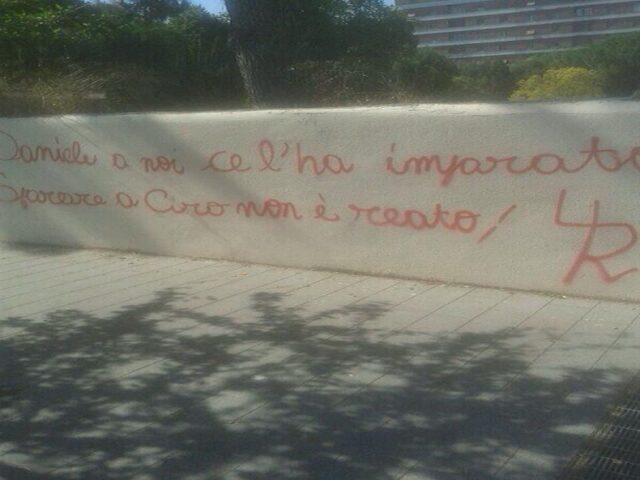 Daniele a noi ce l'ha imparato
Sparare a Ciro non è reato!